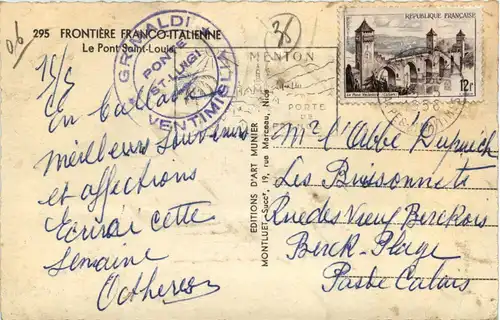 06
295 FRONTIÈRE FRANCO-ITALIENNE
Le Pont Saint-Louis
GRIMALDI
PONTE
ST. LUIGI
VENTIMIGLIA
36
MENTON
PORTE
DE
RÉPUBLIQUE FRANÇAISE
12F
15/5
En ballade
meilleurs souvenirs
et affections
Ecrirai cette
semaine
EDITIONS D'ART MUNIER
MONTLUET-Succr. 19, rue Marceau, Nice
Mr l'Abbé Dupuich
Les Buissonnets
Rue des Vieux Berckois
Berck-Plage
Pas de Calais